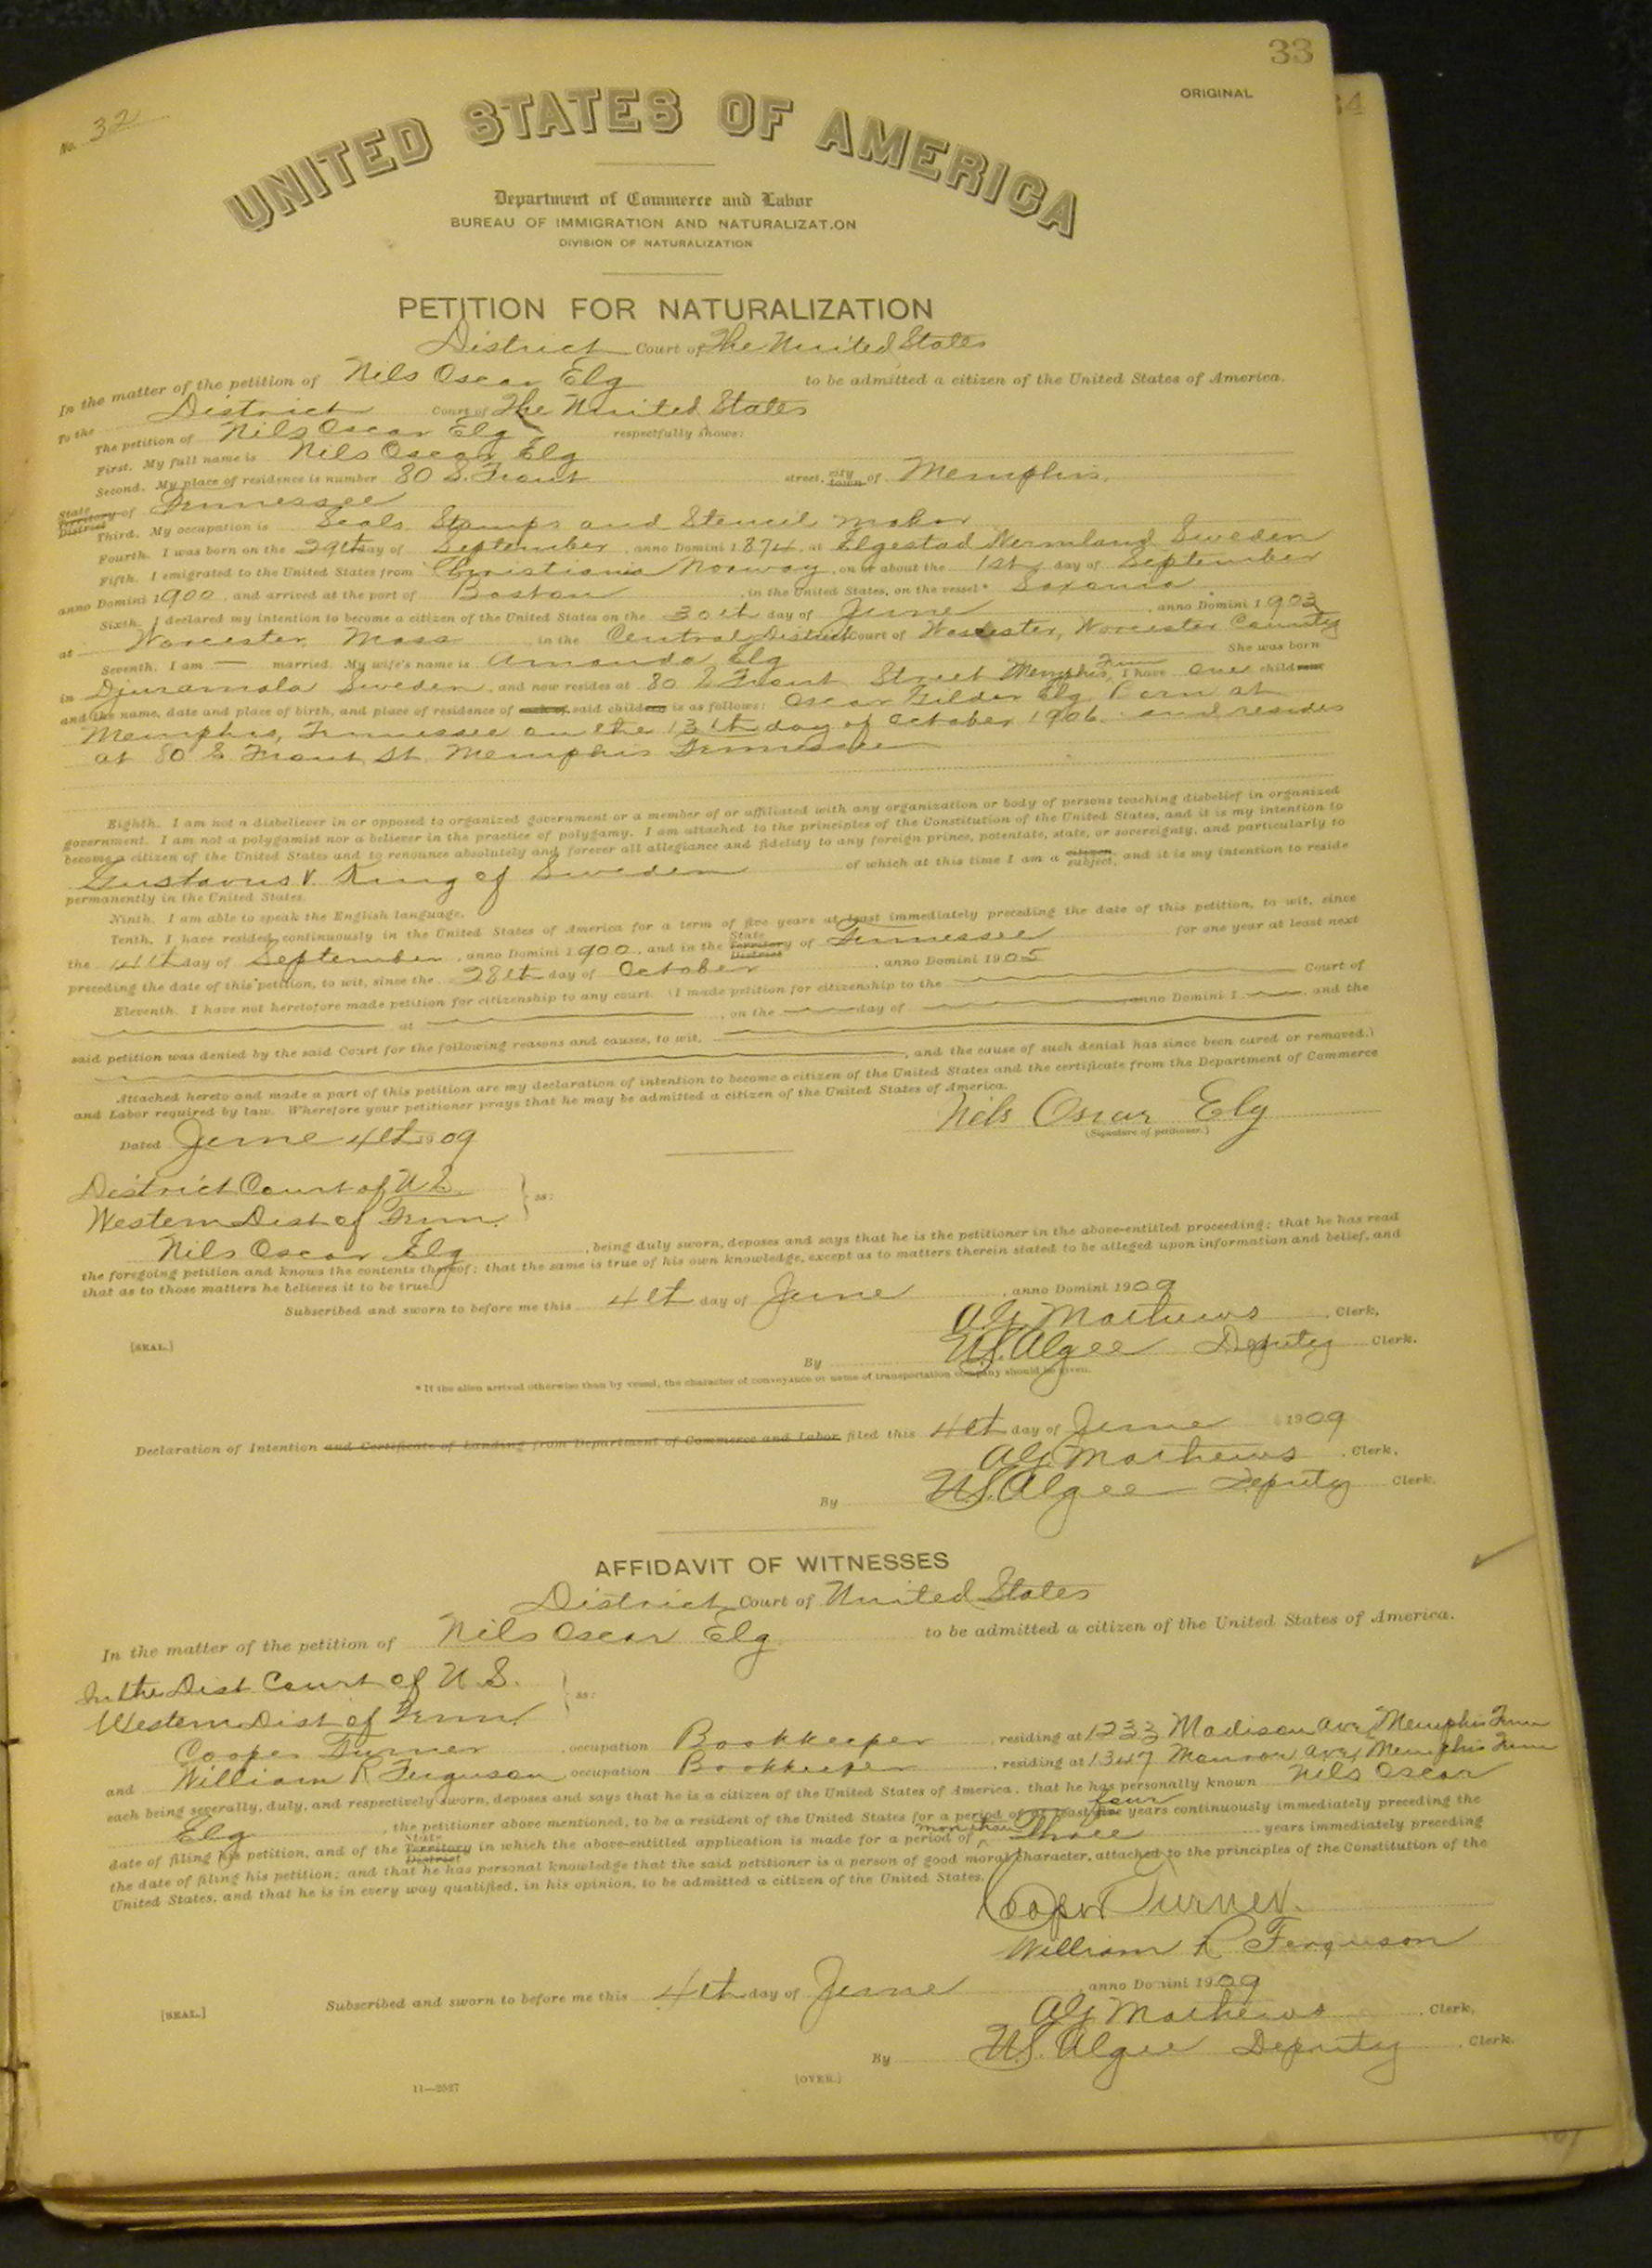 33
ORIGINAL
34
No. 32
UNITED STATES OF AMERICA
Department of Commerce and Labor
BUREAU OF IMMIGRATION AND NATURALIZATION
DIVISION OF NATURALIZATION
PETITION FOR NATURALIZATION
District Court of The United States
In the matter of the petition of Nils Oscar Elg to be admitted a citizen of the United States of America.
To the District Court of The United States
The petition of Nils Oscar Elg respectfully shows:
First. My full name is Nils Oscar Elg
Second. My place of residence is number 80 S. Front street, city town of Memphis,
State Territory District of Tennessee
Third. My occupation is Seals Stamps and Stencil maker
Fourth. I was born on the 29th day of September, anno Domini 1874, at Elgestad Wermland Sweden
Fifth. I emigrated to the United States from Christiania Norway, on or about the 1st day of September
anno Domini 1900, and arrived at the port of Boston, in the United States, on the vessel* Saxonia
Sixth. I declared my intention to become a citizen of the United States on the 30th day of June, anno Domini 1903
at Worcester, Mass in the Central District Court of Worcester, Worcester County
Seventh. I am — married. My wife's name is Amanda Elg She was born
in Djuramala Sweden, and now resides at 80 S Front Street Memphis, Tenn I have one children
and the name, date and place of birth, and place of residence of each of said children is as follows: Oscar Gilder Elg Born at
Memphis, Tennessee on the 13th day of October 1906 and resides
at 80 S Front St. Memphis Tennessee
Eighth. I am not a disbeliever in or opposed to organized government or a member of or affiliated with any organization or body of persons teaching disbelief in organized
government. I am not a polygamist nor a believer in the practice of polygamy. I am attached to the principles of the Constitution of the United States, and it is my intention to
become a citizen of the United States and to renounce absolutely and forever all allegiance and fidelity to any foreign prince, potentate, state, or sovereignty, and particularly to
Gustavus V. King of Sweden of which at this time I am a citizen subject, and it is my intention to reside
permanently in the United States.
Ninth. I am able to speak the English language.
Tenth. I have resided continuously in the United States of America for a term of five years at least immediately preceding the date of this petition, to wit, since
the 14th day of September, anno Domini 1900, and in the State Territory District of Tennessee for one year at least next
preceding the date of this petition, to wit, since the 28th day of October, anno Domini 1905
Eleventh. I have not heretofore made petition for citizenship to any court. (I made petition for citizenship to the Court of
at , on the day of , anno Domini 1 , and the
said petition was denied by the said Court for the following reasons and causes, to wit,
, and the cause of such denial has since been cured or removed.)
Attached hereto and made a part of this petition are my declaration of intention to become a citizen of the United States and the certificate from the Department of Commerce
and Labor required by law. Wherefore your petitioner prays that he may be admitted a citizen of the United States of America.
Nils Oscar Elg
(Signature of petitioner.)
Dated June 4th 1909
District Court of U S.
Western Dist of Tenn. ss:
Nils Oscar Elg, being duly sworn, deposes and says that he is the petitioner in the above-entitled proceeding; that he has read
the foregoing petition and knows the contents thereof; that the same is true of his own knowledge, except as to matters therein stated to be alleged upon information and belief, and
that as to those matters he believes it to be true.
Subscribed and sworn to before me this 4th day of June, anno Domini 1909
A. G. Mathews Clerk.
[SEAL.]
By W.S. Algee Deputy Clerk.
* If the alien arrived otherwise than by vessel, the character of conveyance or name of transportation company should be given.
Declaration of Intention and Certificate of Landing from Department of Commerce and Labor filed this 4th day of June 1909
A G. Mathews Clerk.
By W.S. Algee Deputy Clerk.
AFFIDAVIT OF WITNESSES
District Court of United States
In the matter of the petition of Nils Oscar Elg to be admitted a citizen of the United States of America.
In the Dist Court of U. S.
Western Dist of Tenn ss:
Cooper Turner, occupation Bookkeeper, residing at 1233 Madison Ave, Memphis Tenn
and William R Ferguson, occupation Bookkeeper, residing at 1347 Monroe Ave, Memphis Tenn
each being severally, duly, and respectively sworn, deposes and says that he is a citizen of the United States of America, that he has personally known Nils Oscar
Elg, the petitioner above mentioned, to be a resident of the United States for a period of at least five four years continuously immediately preceding the
date of filing his petition, and of the State Territory District in which the above-entitled application is made for a period of more than Three years immediately preceding
the date of filing his petition; and that he has personal knowledge that the said petitioner is a person of good moral character, attached to the principles of the Constitution of the
United States, and that he is in every way qualified, in his opinion, to be admitted a citizen of the United States.
Cooper Turner.
William R Ferguson
Subscribed and sworn to before me this 4th day of June, anno Domini 1909
[SEAL.]
A G Mathews Clerk,
By W.S. Algee Deputy Clerk.
11—2527
[OVER.]